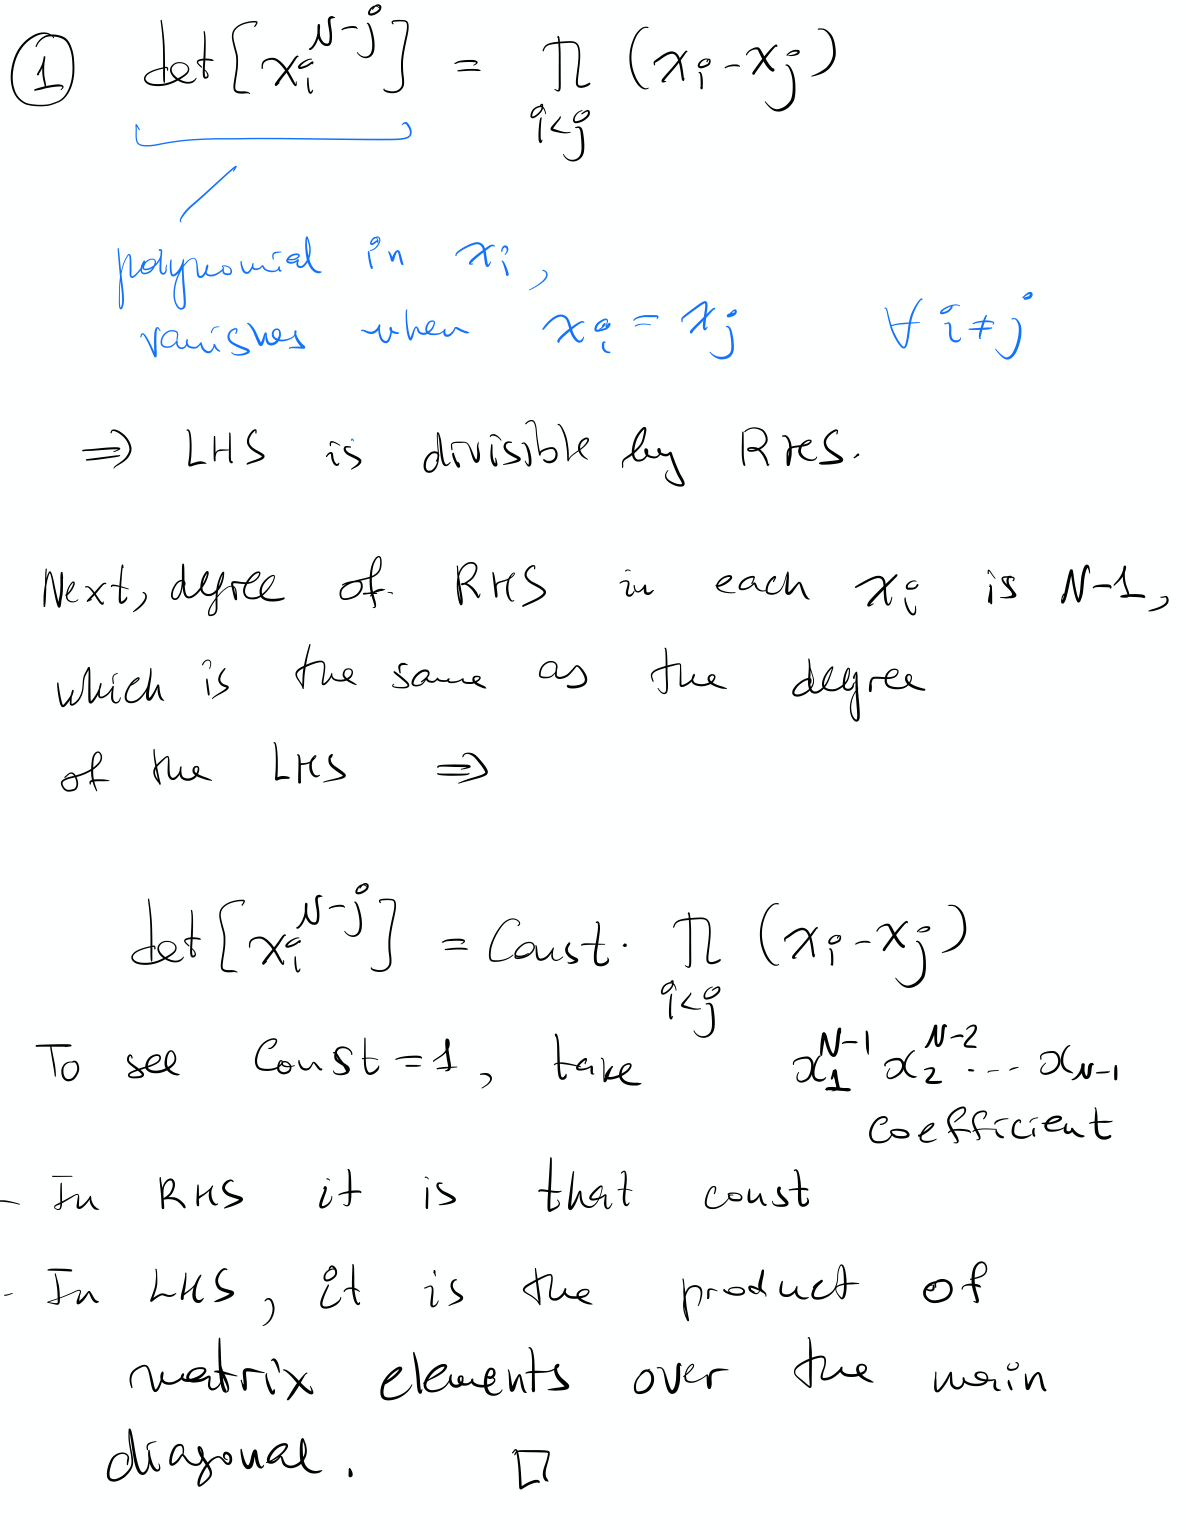 ① det[x_i^{N-j}] = ∏_{i<j} (x_i - x_j)
polynomial in x_i,
vanishes when x_i = x_j ∀ i≠j
⇒ LHS is divisible by RHS.
Next, degree of RHS in each x_i is N-1,
which is the same as the degree
of the LHS ⇒
det[x_i^{N-j}] = Const · ∏_{i<j} (x_i - x_j)
To see Const = 1, take x_1^{N-1} x_2^{N-2} ... x_{N-1}
coefficient
- In RHS it is that const
- In LHS, it is the product of
matrix elements over the main
diagonal. □